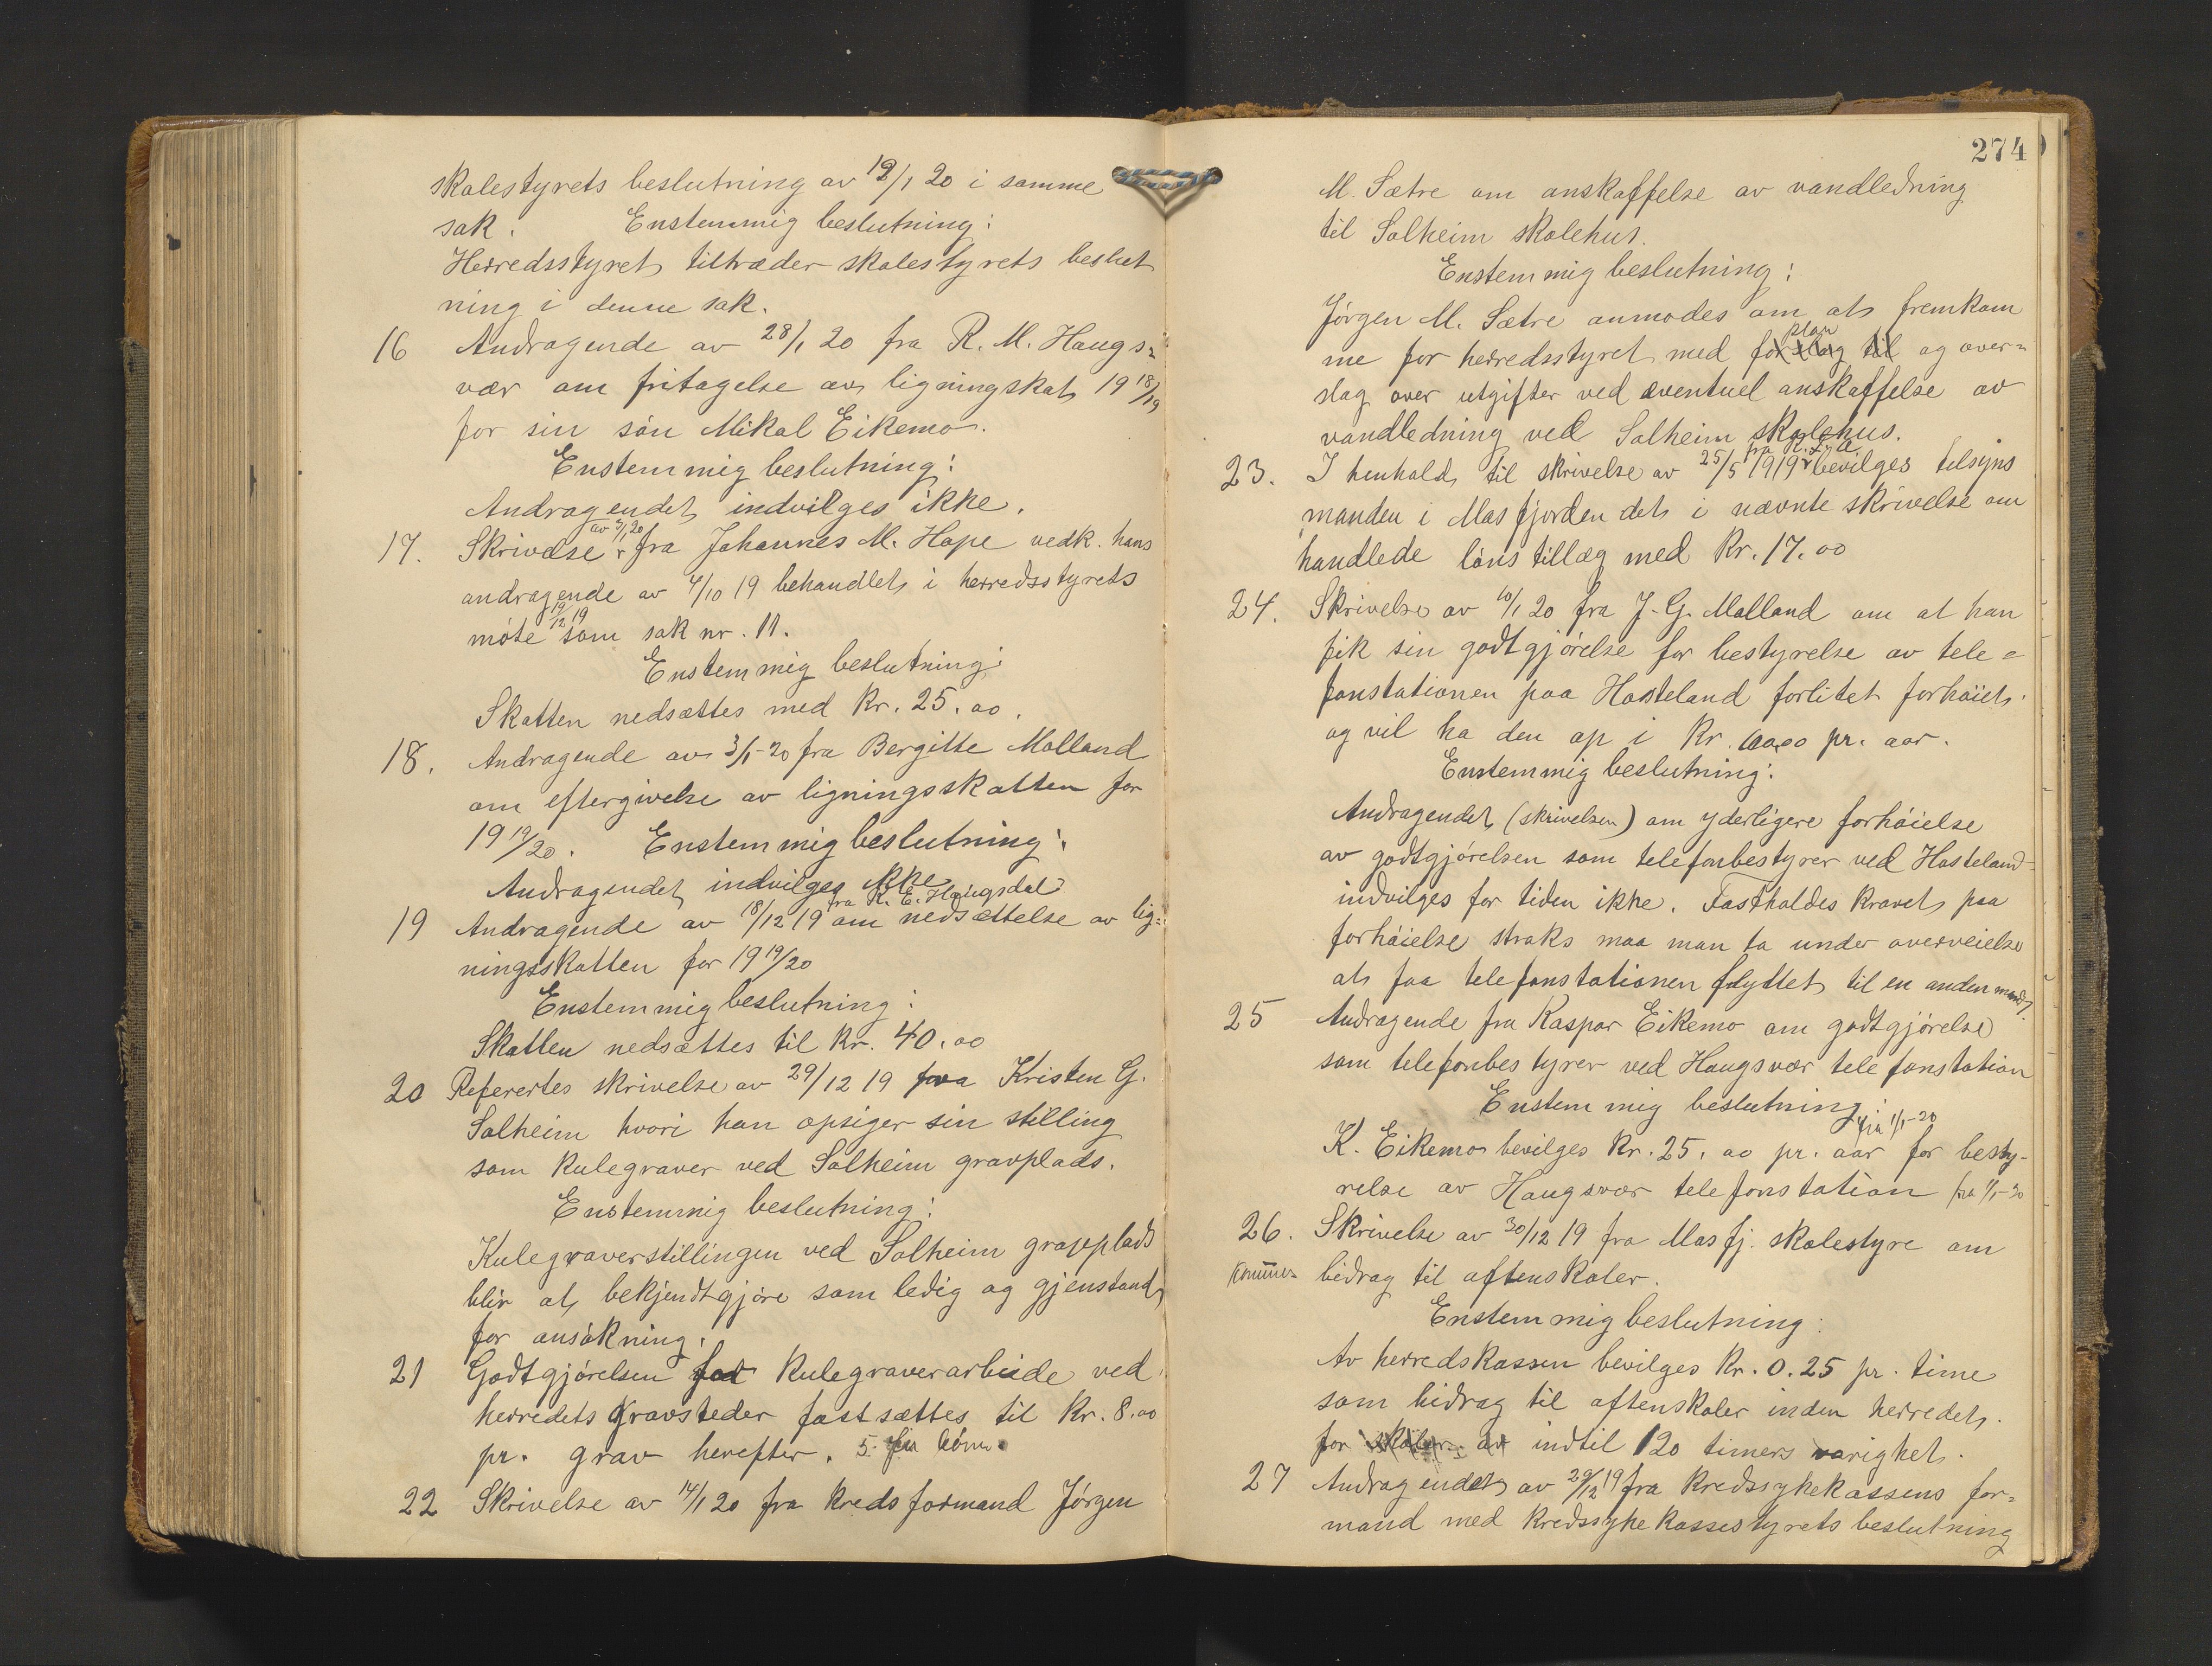 skolestyrets beslutning av 12/1 20 i samme
sak. Enstemmig beslutning:
Herredsstyret tiltræder skolestyrets beslut
ning i denne sak.
16 Andragende av 28/1 20 fra R. M. Haugs=
vær om fritagelse av ligningskat 19 18/19
for sin sön Mikal Eikemo.
Enstemmig beslutning:
Andragendet indvilges ikke.
17. Skrivelse av 3/1 20 fra Johannes M. Hope vedk. hans
andragende av 4/10 19 behandlet i herredsstyrets
möte 19/12 19 som sak nr. 11.
Enstemmig beslutning:
Skatten nedsættes med Kr. 25.00.
18. Andragende av 3/1-20 fra Bergitte Molland
om eftergivelse av ligningsskatten for
19 19/20. Enstemmig beslutning:
Andragendet indvilges ikke
19 Andragende av 18/12 19 fra R. E. Haugsdal om nedsættelse av lig=
ningsskatten for 19 19/20
Enstemmig beslutning:
Skatten nedsættes til Kr. 40.00
20 Referertes skrivelse av 29/12 19 fra Kristen G.
Solheim hvori han opsiger sin stilling
som kulegraver ved Solheim gravplads.
Enstemmig beslutning:
Kulegraverstillingen ved Solheim gravplads
blir at bekjendtgjöre som ledig og gjenstand
for ansökning.
21 Godtgjörelsen for kulegraverarbeide ved
herredets gravsteder fastsættes til Kr. 8.00
pr. grav herefter. 5.
22 Skrivelse av 14/1 20 fra kredsformand Jörgen
274
M. Sætre om anskaffelse av vandledning
til Solheim skolehus.
Enstemmig beslutning:
Jörgen M. Sætre anmodes om at fremkom
me for herredsstyret med forslag til plan og over=
slag over utgifter ved eventuel anskaffelse av
vandledning ved Solheim skolehus.
23. I henhold til skrivelse av 25/5 1919 bevilges tilsyns
manden i Masfjorden det i nævnte skrivelse om
handlede lönstillæg med Kr. 17.00
24. Skrivelse av 10/1 20 fra J. G. Molland om at han
fik sin godtgjörelse for bestyrelse av tele=
fonstationen paa Hosteland forlitet forhöiet.
og vil ha den op i Kr. 60.00 pr. aar.
Enstemmig beslutning:
Andragendet (skrivelsen) om yderligere forhöielse
av godtgjörelsen som telefonbestyrer ved Hosteland
indvilges for tiden ikke. Fastholdes kravet paa
forhöielse straks maa man ta under overveielse
at faa telefonstationen flyttet til en anden mand.
25 Andragende fra Kaspar Eikemo om godtgjörelse
som telefonbestyrer ved Haugsvær telefonstation
Enstemmig beslutning:
K. Eikemo bevilges Kr. 25.00 pr. aar fra 1/1-20 for besty-
relse av Haugsvær telefonstation fra 1/1-20
26. Skrivelse av 30/12 19 fra Masfj. skolestyre om
kommune= bidrag til aftenskoler.
Enstemmig beslutning:
Av herredskassen bevilges Kr. 0.25 pr. time
som bidrag til aftenskoler inden herredet.
for skoler av indtil 120 timers varighet.
27 Andragendet av 29/12 19 fra kredssykekassens for=
mand med kredssykekassestyrets beslutning